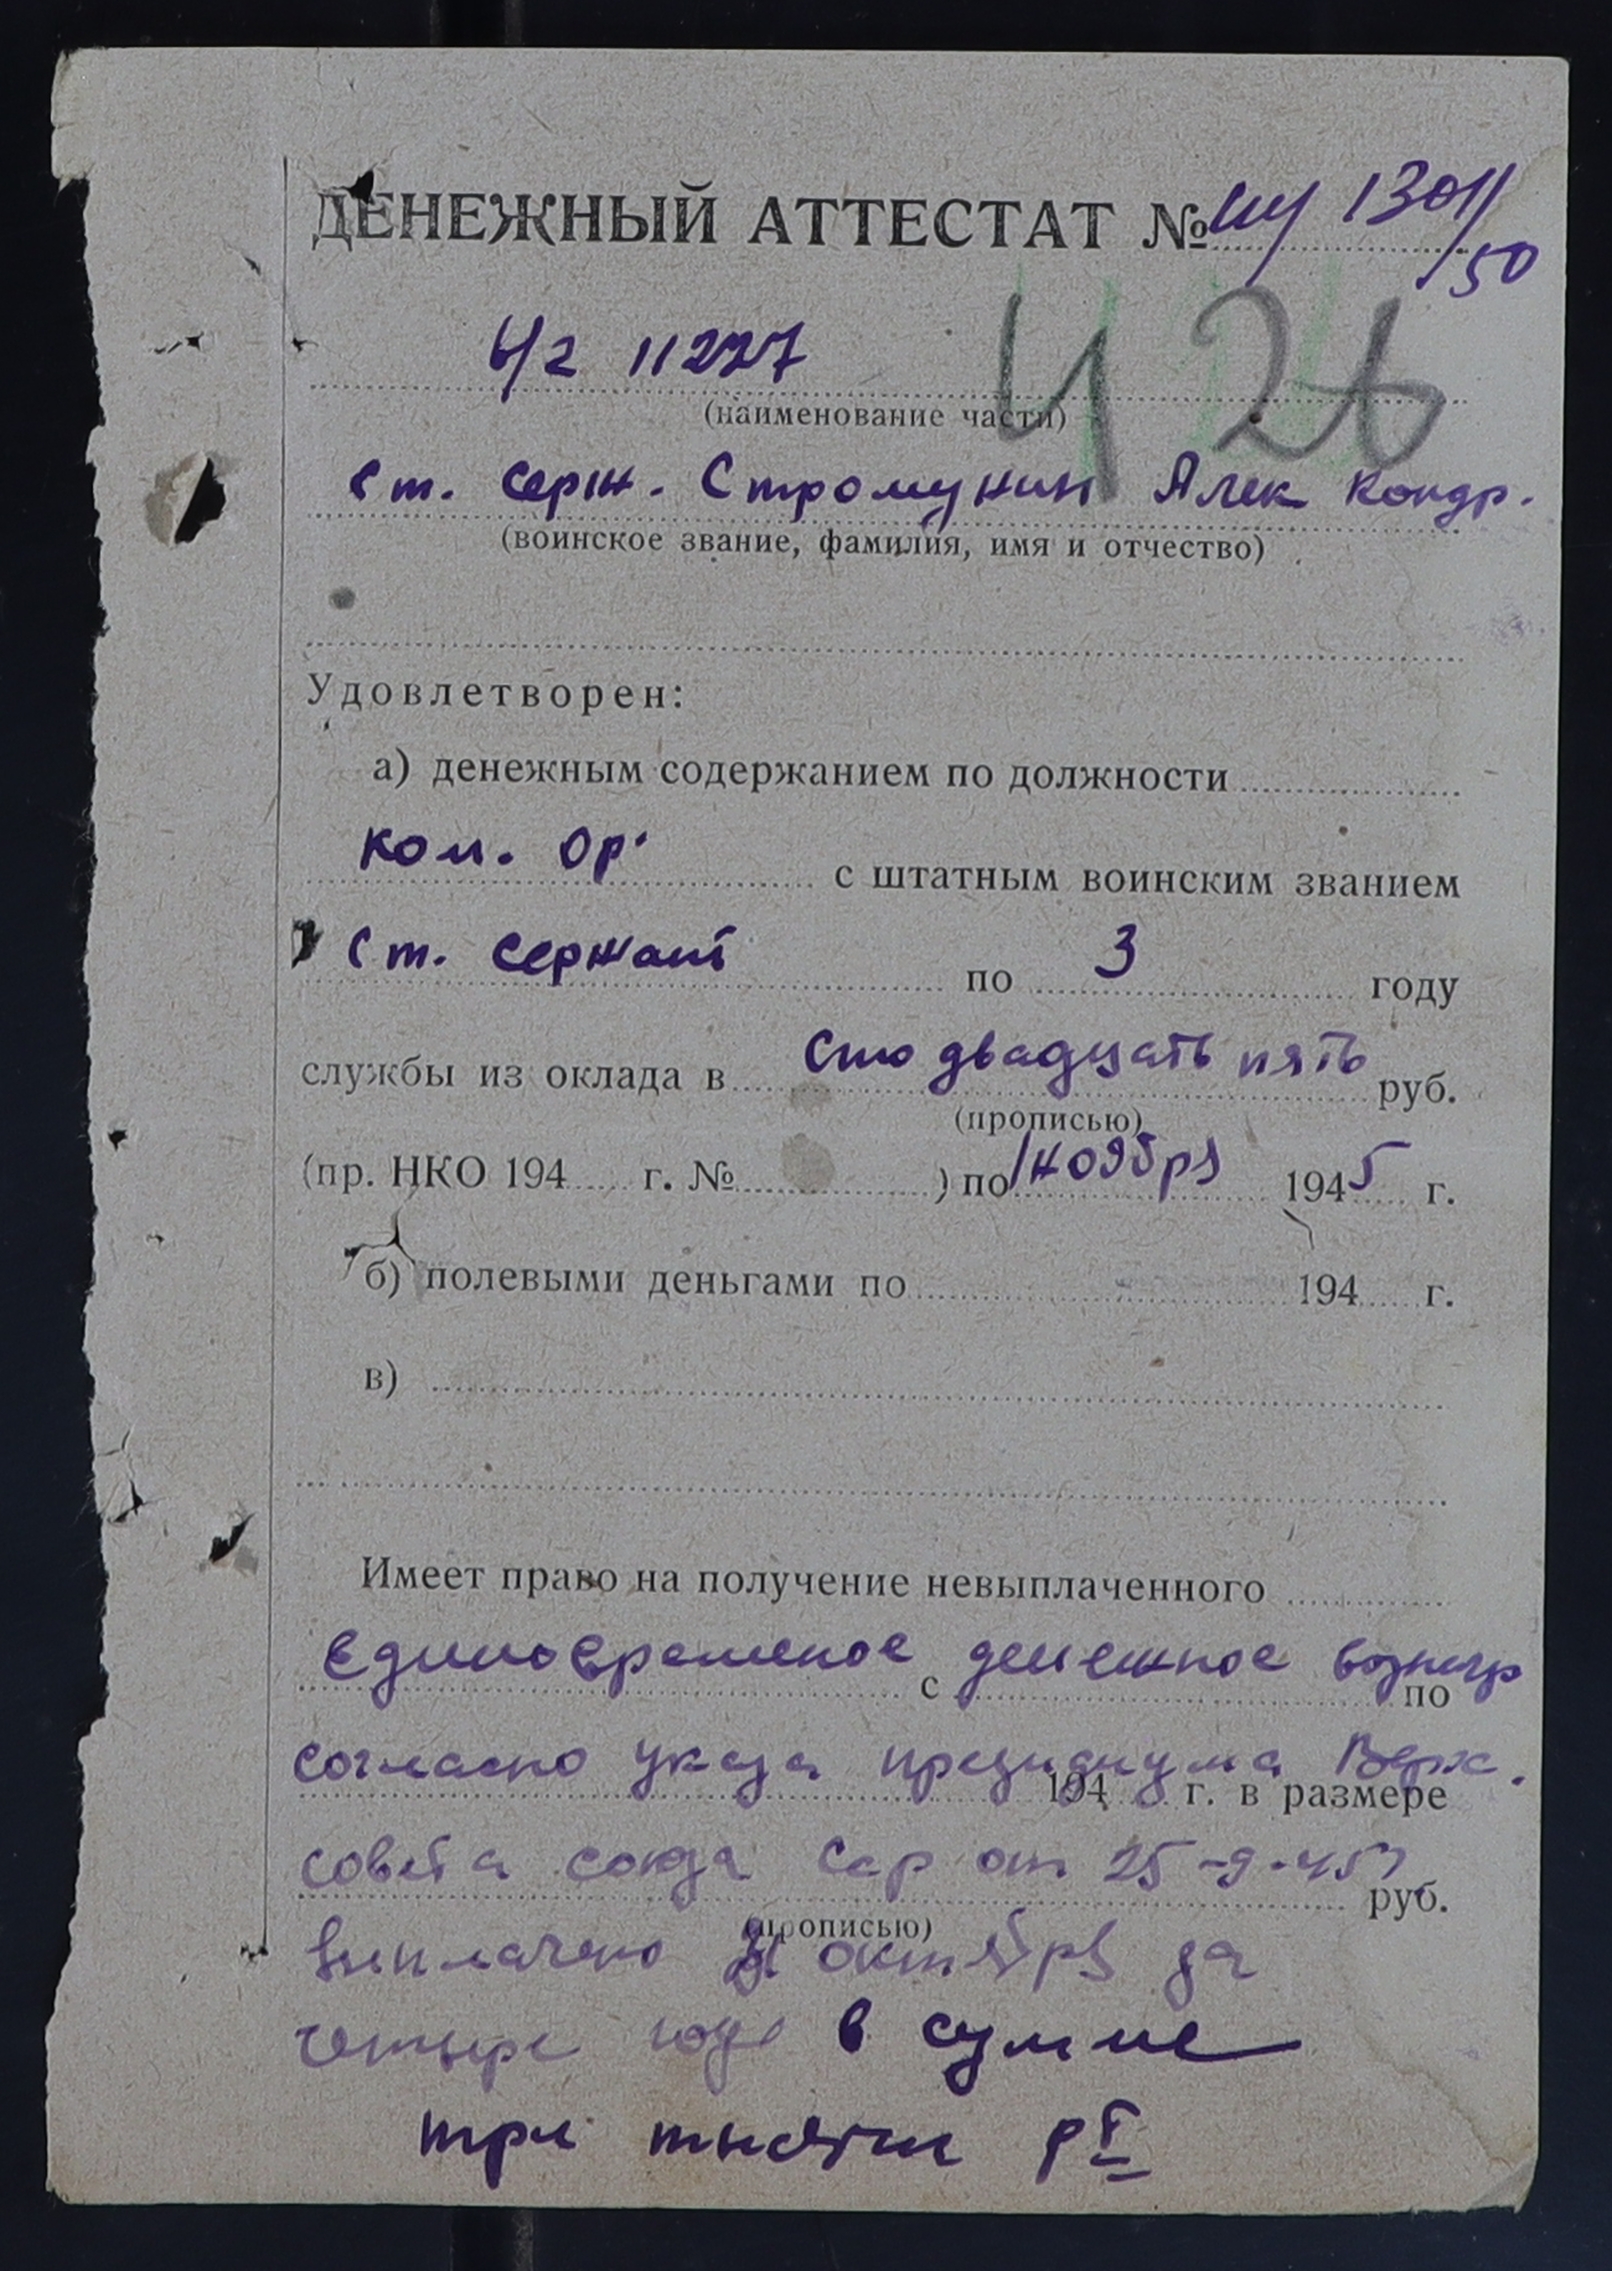 ДЕНЕЖНЫЙ АТТЕСТАТ № 1301/50
11227
Ч 26
(наименование части)
Ст. серж. Стромунин Алек Кондр.
(воинское звание, фамилия, имя и отчество)
Удовлетворен:
а) денежным содержанием по должности
Ком. Ор. с штатным воинским званием
Ст. Сержант по 3 году
службы из оклада в Сто двадцать пять руб.
(прописью)
(пр. НКО 194 г. № ) по 1 ноября 1945 г.
б) полевыми деньгами по 194 г.
в)
Имеет право на получение невыплаченного
единовременое денежное вознагр
с по
согласно указа президиума Верх.
194 г. в размере
совета союза сср от 25-9-45г.
руб.
(прописью)
выплачено октября за
четыре года в сумме
три тысячи р